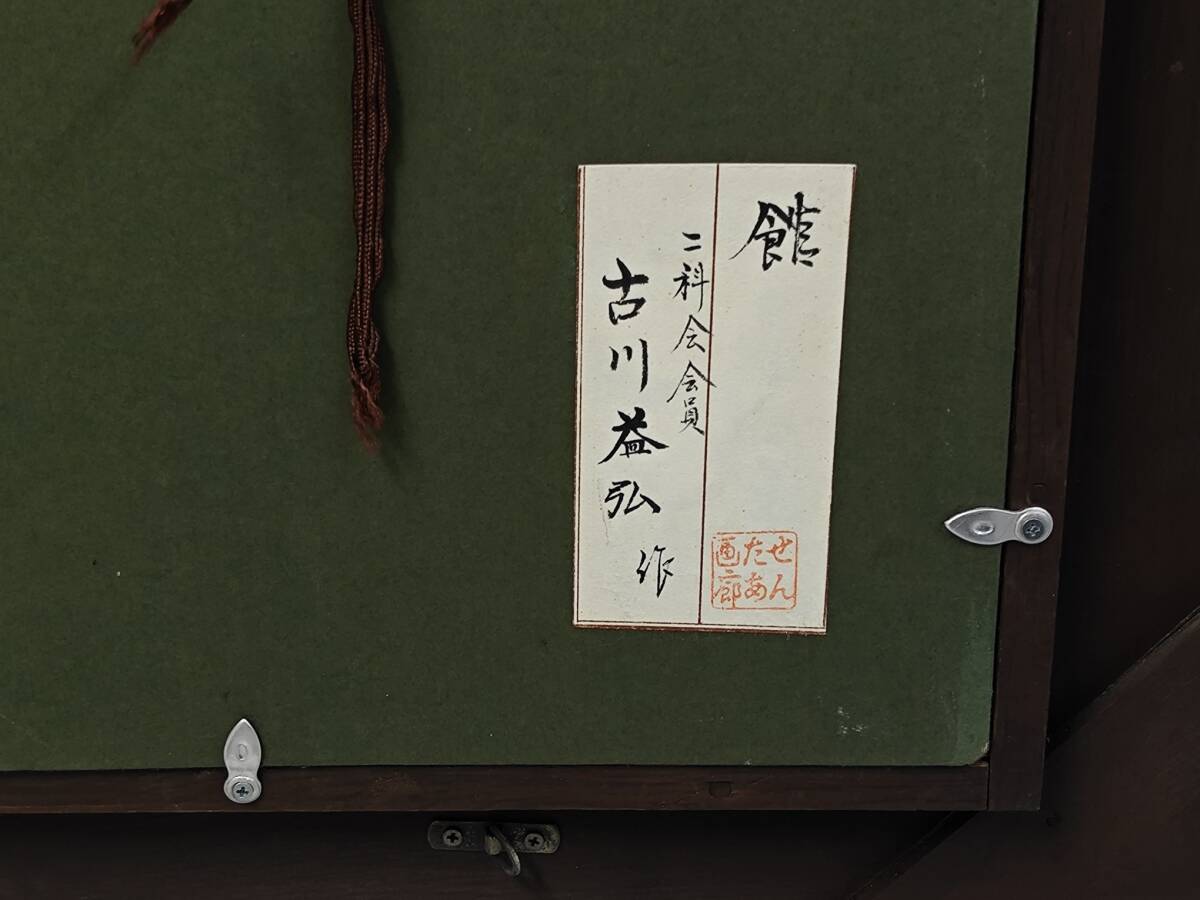 館
二科会会員
古川益弘 作
せん
たあ
画廊